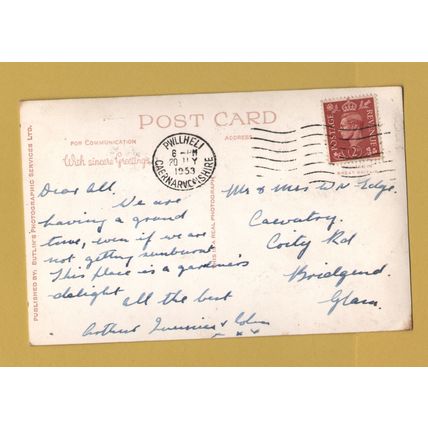 POST CARD
FOR COMMUNICATION
ADDRESS
With sincere Greetings
PWLLHELI
6 - PM
20 JLY
1953
CAERNARVONSHIRE
POSTAGE
REVENUE
2D
PUBLISHED BY: BUTLIN'S PHOTOGRAPHIC SERVICES LTD.
THIS IS A REAL PHOTOGRAPH
Dear All,
We are
having a grand
time, even if we are
not getting sunburnt
This place is a gardeners
delight
all the best
Arthur
x x x
Mr & Mrs
Coity Rd
Bridgend
Glam.